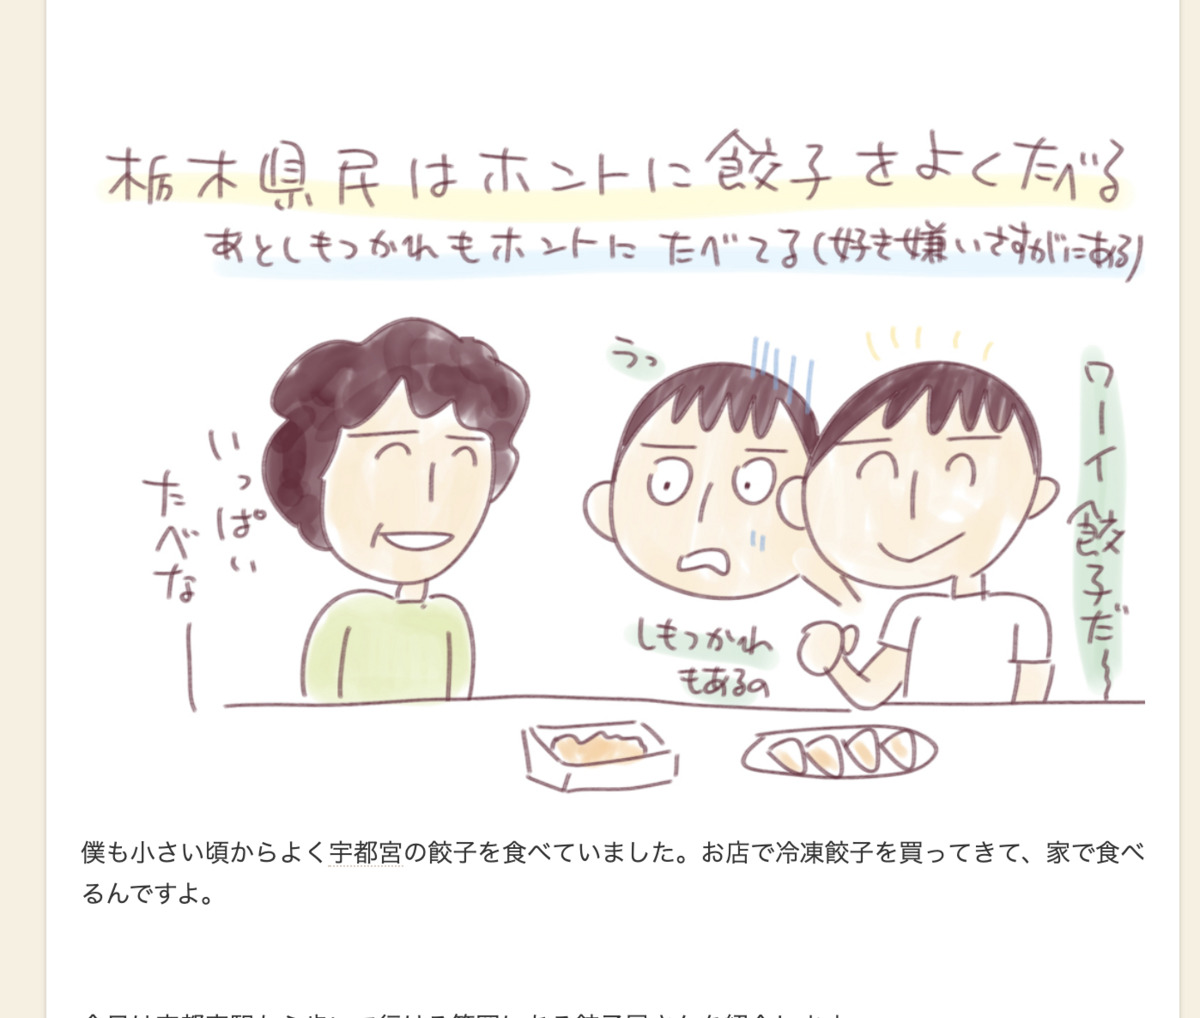 栃木県民はホントに餃子をよくたべる
あとしもつかれもホントにたべてる(好き嫌いさすがにある)
いっぱい
たべな
うっ
しもつかれ
もあるの
ワーイ餃子だ〜
僕も小さい頃からよく宇都宮の餃子を食べていました。お店で冷凍餃子を買ってきて、家で食べ
るんですよ。